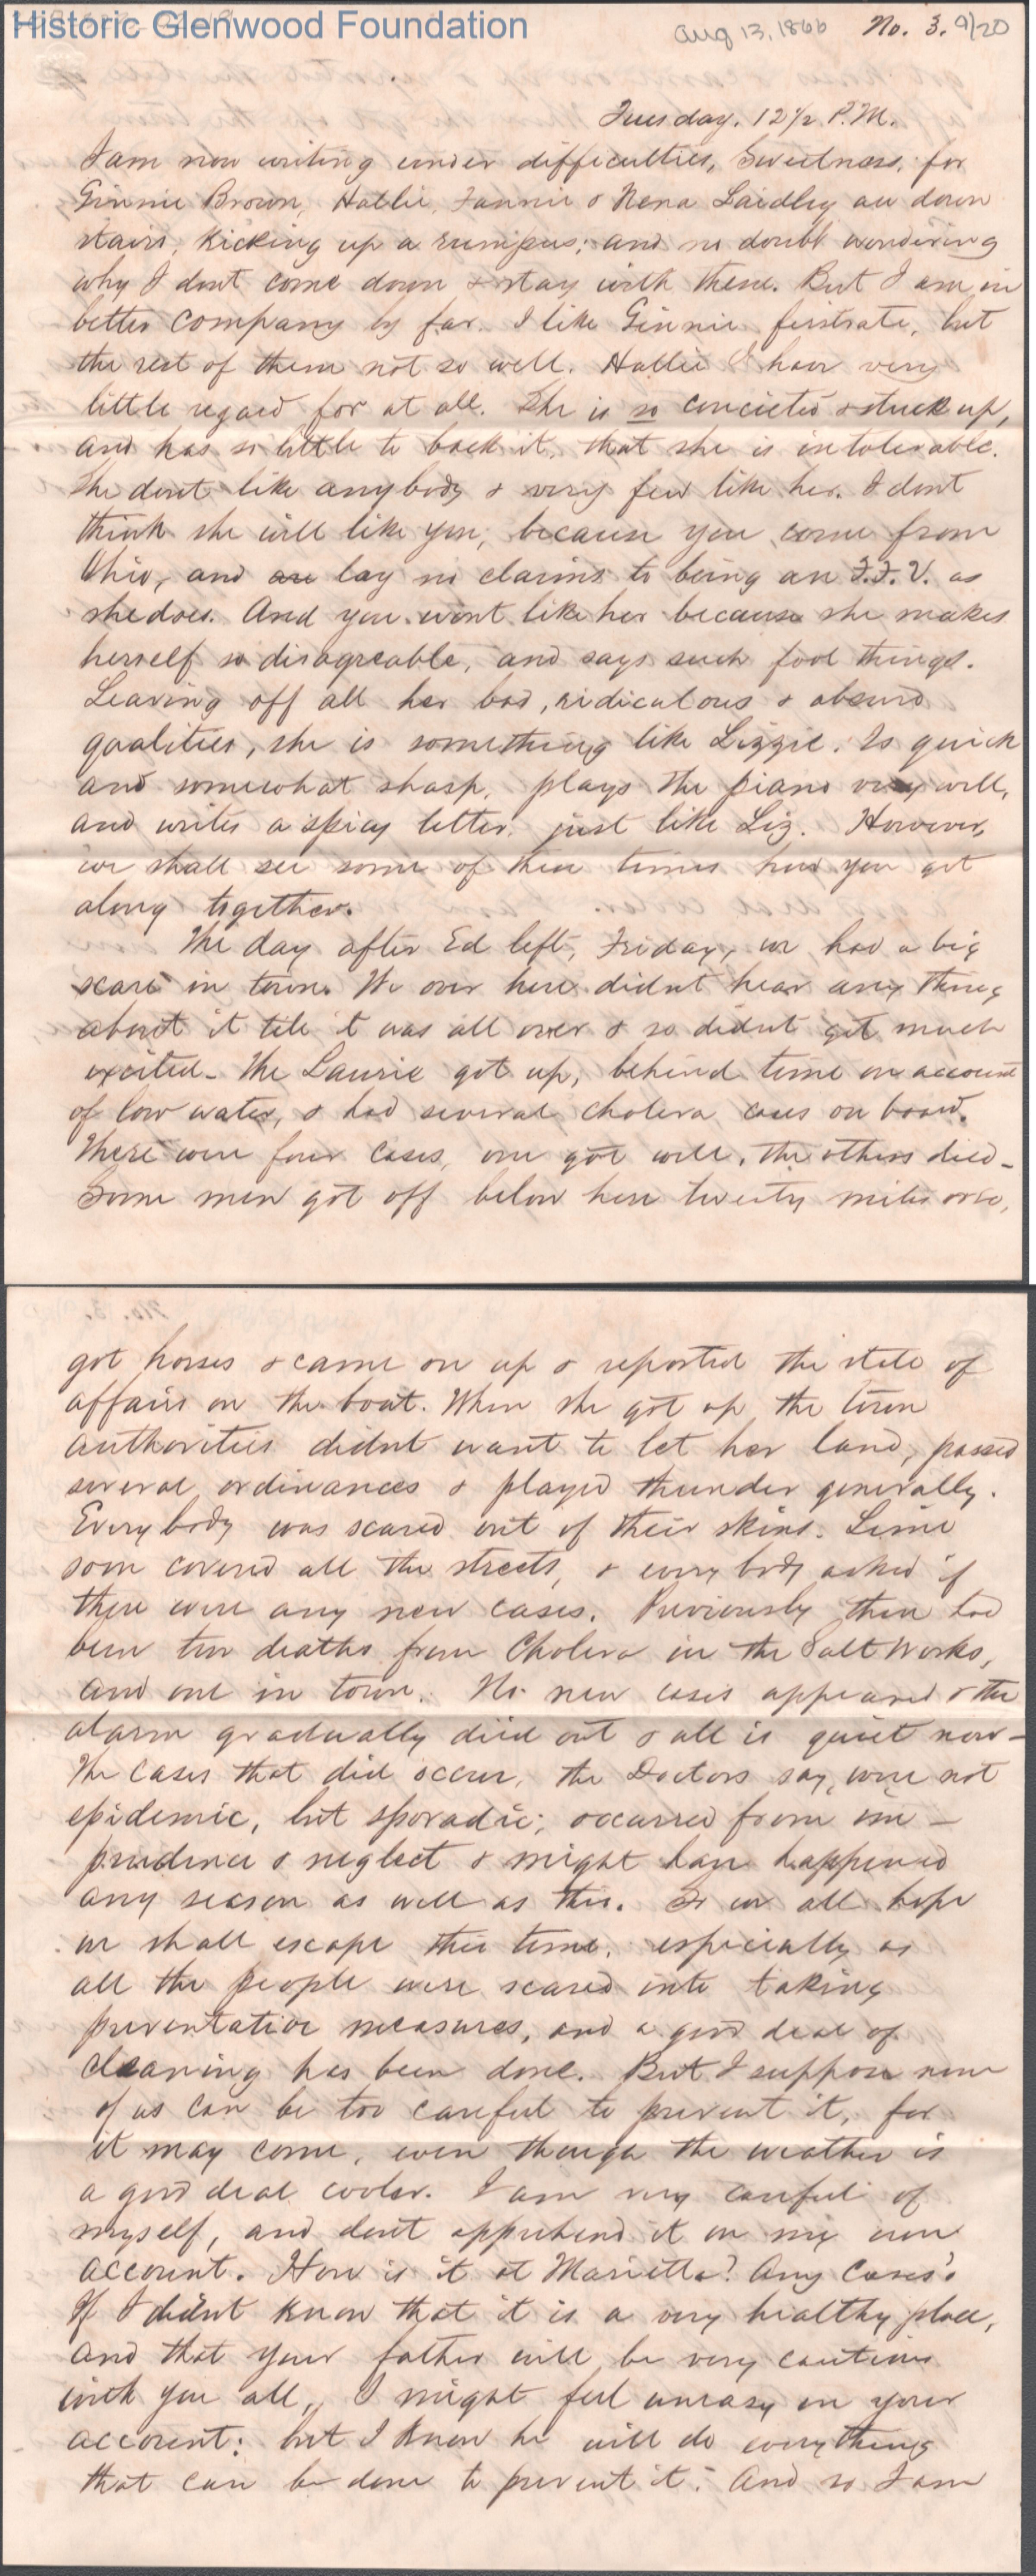 Historic Glenwood Foundation
Aug 13, 1866 No. 3. 9/20
Tuesday. 12 1/2 P.M.
I am now writing under difficulties, Sweetness, for
Ginnie Brown, Hallie, Fannie & Nena Laidley are down
stairs, kicking up a rumpus; and no doubt wondering
why I dont come down & stay with them. But I am in
better company by far. I like Ginnie firstrate, but
the rest of them not so well. Hallie I have very
little regard for at all. She is so concieted & stuck up,
and has so little to back it, that she is intolerable.
She dont like anybody & very few like her. I dont
think she will like you, because you come from
Ohio, and are lay no claims to being an F.F.V. as
she does. And you wont like her because she makes
herself so disagreable, and says such fool things.
Leaving off all her bad, ridiculous & absurd
qualities, she is something like Lizzie. Is quick
and somewhat sharp, plays the piano very well,
and writes a spicy letter, just like Liz. However,
we shall see some of these times how you get
along together.
The day after Ed left, Friday, we had a big
scare in town. We over here didnt hear any thing
about it till it was all over & so didnt get much
excited - The Laurie got up, behind time on account
of low water, & had several cholera cases on board.
There were four cases, one got well, the others died -
Some men got off below here twenty miles or so,
got horses & came on up & reported the state of
affairs on the boat. When she got up the town
authorities didnt want to let her land, passed
several ordinances & played thunder generally.
Everybody was scared out of their skins. Lime
soon covered all the streets, & every body asked if
there were any new cases. Previously there had
been two deaths from Cholera in the Salt Works,
and one in town. No new cases appeared & the
alarm gradually died out & all is quiet now -
The cases that did occur, the Doctors say, were not
epidemic, but sporadic; occurred from im -
prudence & neglect & might have happened
any season as well as this. So we all hope
we shall escape this time, especially as
all the people were scared into taking
preventative measures, and a good deal of
cleaning has been done. But I suppose none
of us can be too careful to prevent it, for
it may come, even though the weather is
a good deal cooler. I am very careful of
myself, and dont apprehend it on my own
account. How is it at Marietta? Any Cases?
If I didnt know that it is a very healthy place,
and that your father will be very cautious
with you all, I might feel uneasy on your
account: but I know he will do everything
that can be done to prevent it. And so I am